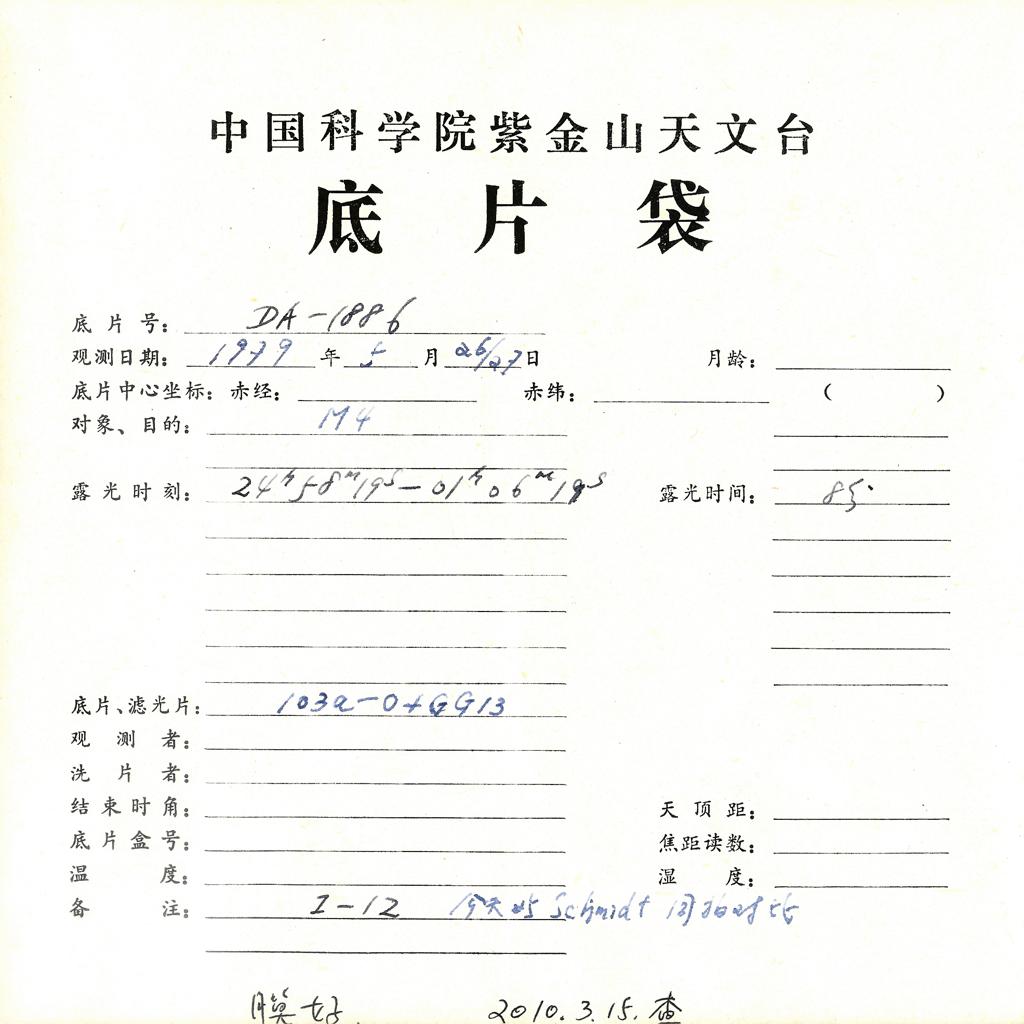 中国科学院紫金山天文台
底片袋
底片号: DA-1886
观测日期: 1979年5月26/27日 月龄:
底片中心坐标: 赤经: 赤纬: ( )
对象、目的: M4
露光时刻: 24h58m19s-01h06m19s 露光时间: 8分
底片、滤光片: 103a-O+GG13
观测者:
洗片者:
结束时角: 天顶距:
底片盒号: 焦距读数:
温度: 湿度:
备注: I-12 今天 Schmidt 同拍对比
膜好 2010.3.15.查